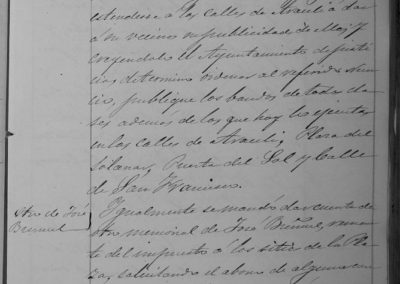 estenderse a las calles de Arauli a dar
a su vecino publicidad de ellos; y
creyendolo el Ayuntamiento de justi
cia determino ordenar al referido Nun
cio, publique los bandos de todas cla
ses ademas de los que hoy lo ejecuta
en las calles de Arauli, Plaza del
Solanar, Puerta del Sol y Calle
de San Francisco.
Otro de José
Bruuel
Igualmente se mandó dar cuenta de
otro memorial de José Bruuel,
te del impuesto á los sitios de la Pla
za, solicitando el abono de alguna can